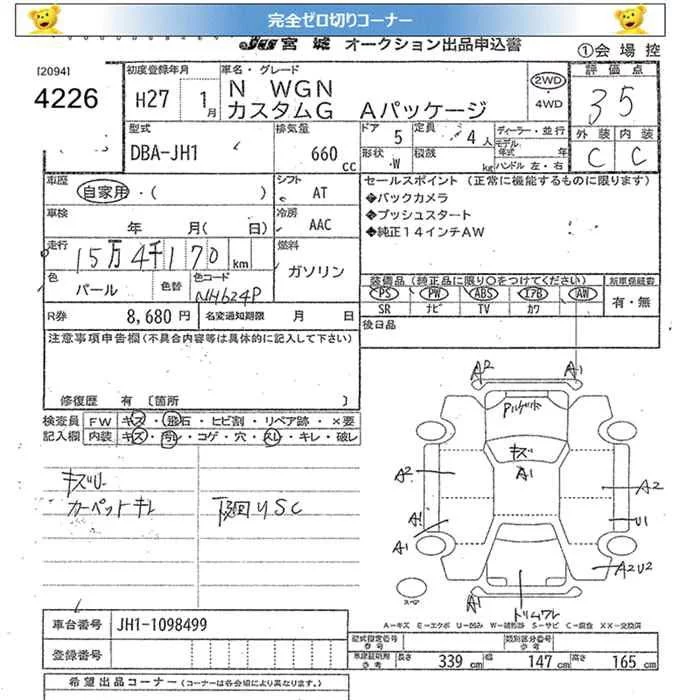 完全ゼロ切りコーナー
宮城 オークション出品申込書
①会場控
[2094]
4226
初度登録年月
H27 1月
車名・グレード
N WGN
カスタムG Aパッケージ
2WD
4WD
評価点
3.5
外装 内装
C C
型式
DBA-JH1
排気量
660 cc
ドア 5
定員 4人
形状 W
積載 kg
ディーラー・並行
モデル年式 年
ハンドル 左・右
車歴
自家用・( )
シフト
AT
車検
年 月( 日)
冷房
AAC
走行
15万4千170 km
燃料
ガソリン
色
パール
色替
色コード
NH624P
R券 8,680 円
名変通知期限 月 日
セールスポイント (正常に機能するものに限ります)
◆バックカメラ
◆プッシュスタート
◆純正14インチAW
装備品 (純正品に限り○をつけてください)
新車保証書
PS PW ABS エアB AW
SR ナビ TV カワ
有・無
後日品
注意事項申告欄(不具合内容等は具体的に記入して下さい)
修復歴 有 〔箇所 〕
検査員記入欄
FW キズ・飛石・ヒビ割・リペア跡・×要
内装 キズ・汚レ・コゲ・穴・スレ・キレ・破レ
キズU
カーペットキレ
下廻りSC
A2 A1
キズ
A1
A2 A2
A1 U1
A1 A2U2
スペア
A1
トリムワレ
A-キズ E-エクボ U-凹み W-補修跡 S-サビ C-腐食 XX-交換済
車台番号 JH1-1098499
登録番号
型式指定番号 参考
類別区分番号 参考
車庫証明用 参考
長さ 339 幅 147 高さ 165 cm
希望出品コーナー (コーナーは各会場により異なります。)